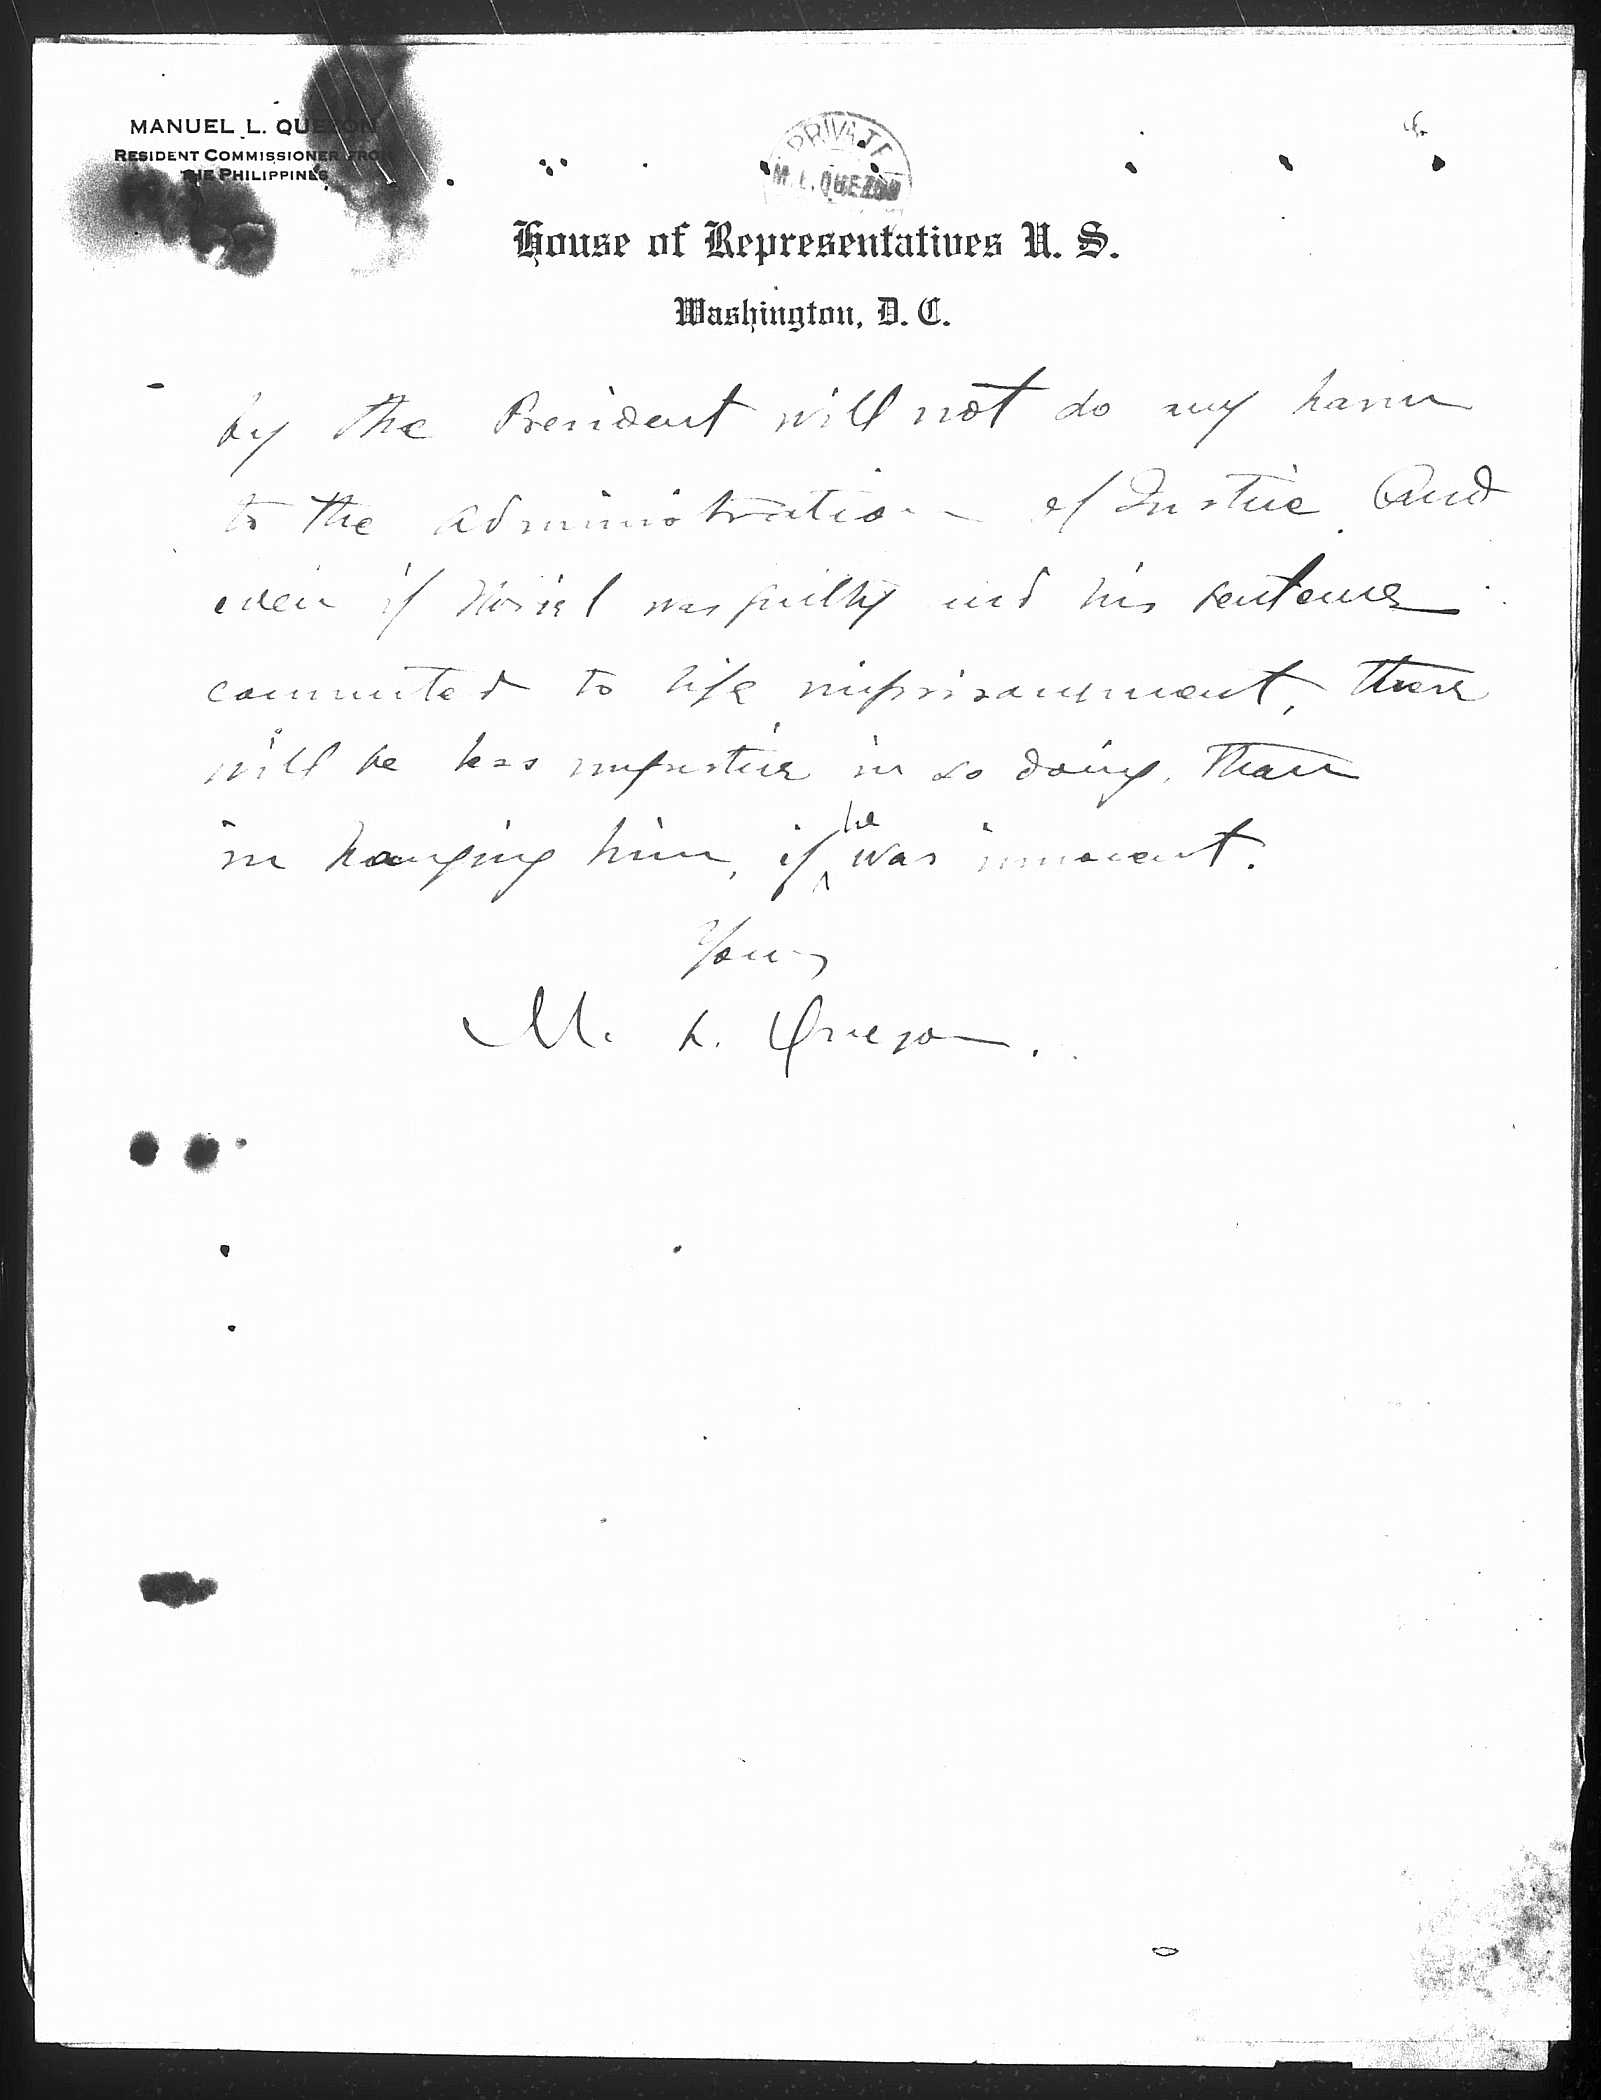 MANUEL L. QUEZON
RESIDENT COMMISSIONER FROM
THE PHILIPPINES
PRIVATE
M. L. QUEZON
House of Representatives U. S.
Washington, D. C.
by the President will not do any harm
to the administration of Justice. And
even if Noriel was guilty and his sentence
commuted to life imprisonment, there
will be less injustice in so doing, than
in hanging him, if he was innocent.
Yours
M. L. Quezon.